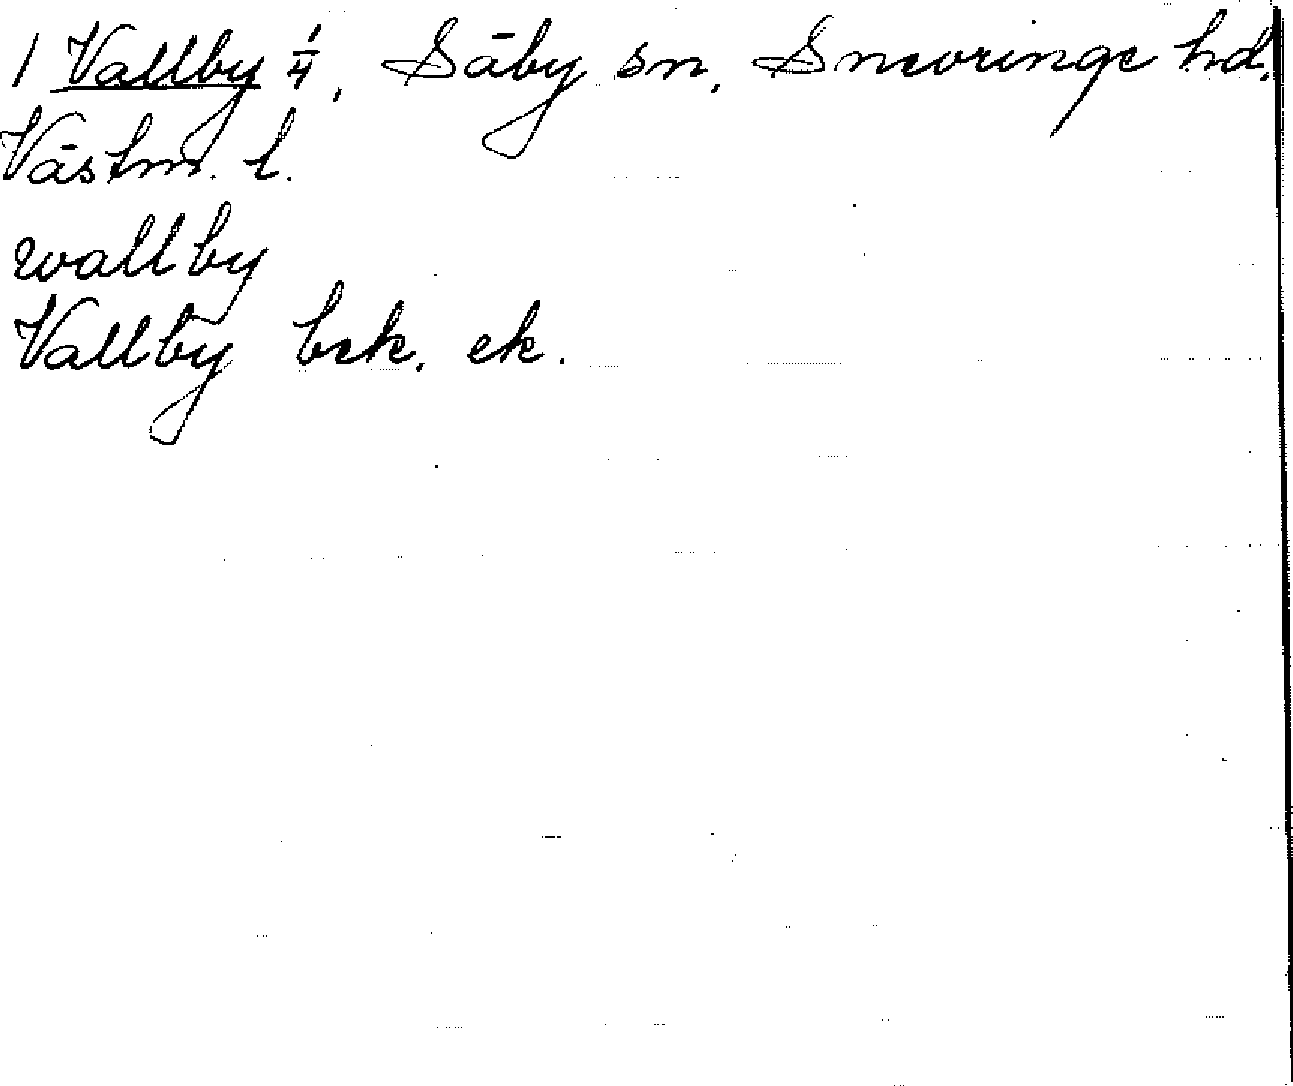 1 Vallby 1/4, Säby sn, Snevringe hd,
Västm. l.
wallby
Vallby bek. ek.